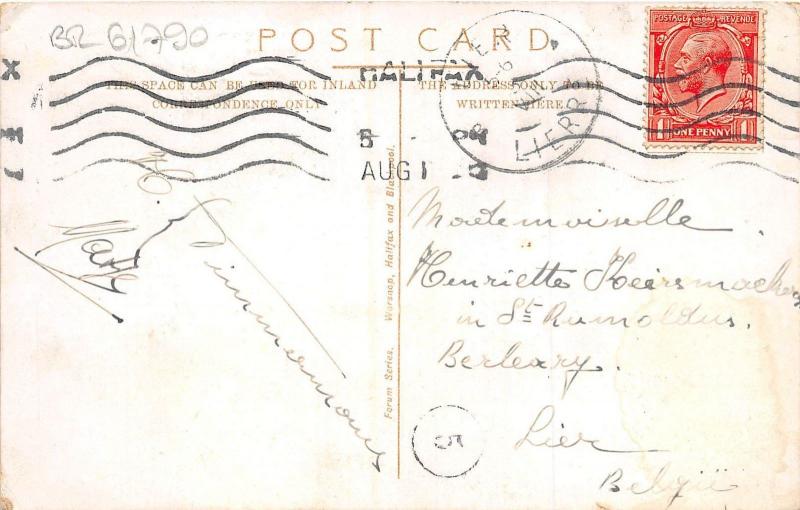 BR 61790
POST CARD.
THIS SPACE CAN BE USED FOR INLAND
CORRESPONDENCE ONLY
THE ADDRESS ONLY TO BE
WRITTEN HERE
HALIFAX
AUG 1
LIER
POSTAGE REVENUE
ONE PENNY
Forum Series. Worsnop, Halifax and Blackpool.
Mademoiselle
Henriette Keirsmaekers
in St Rumoldus.
Berlaary.
Lier
België
5